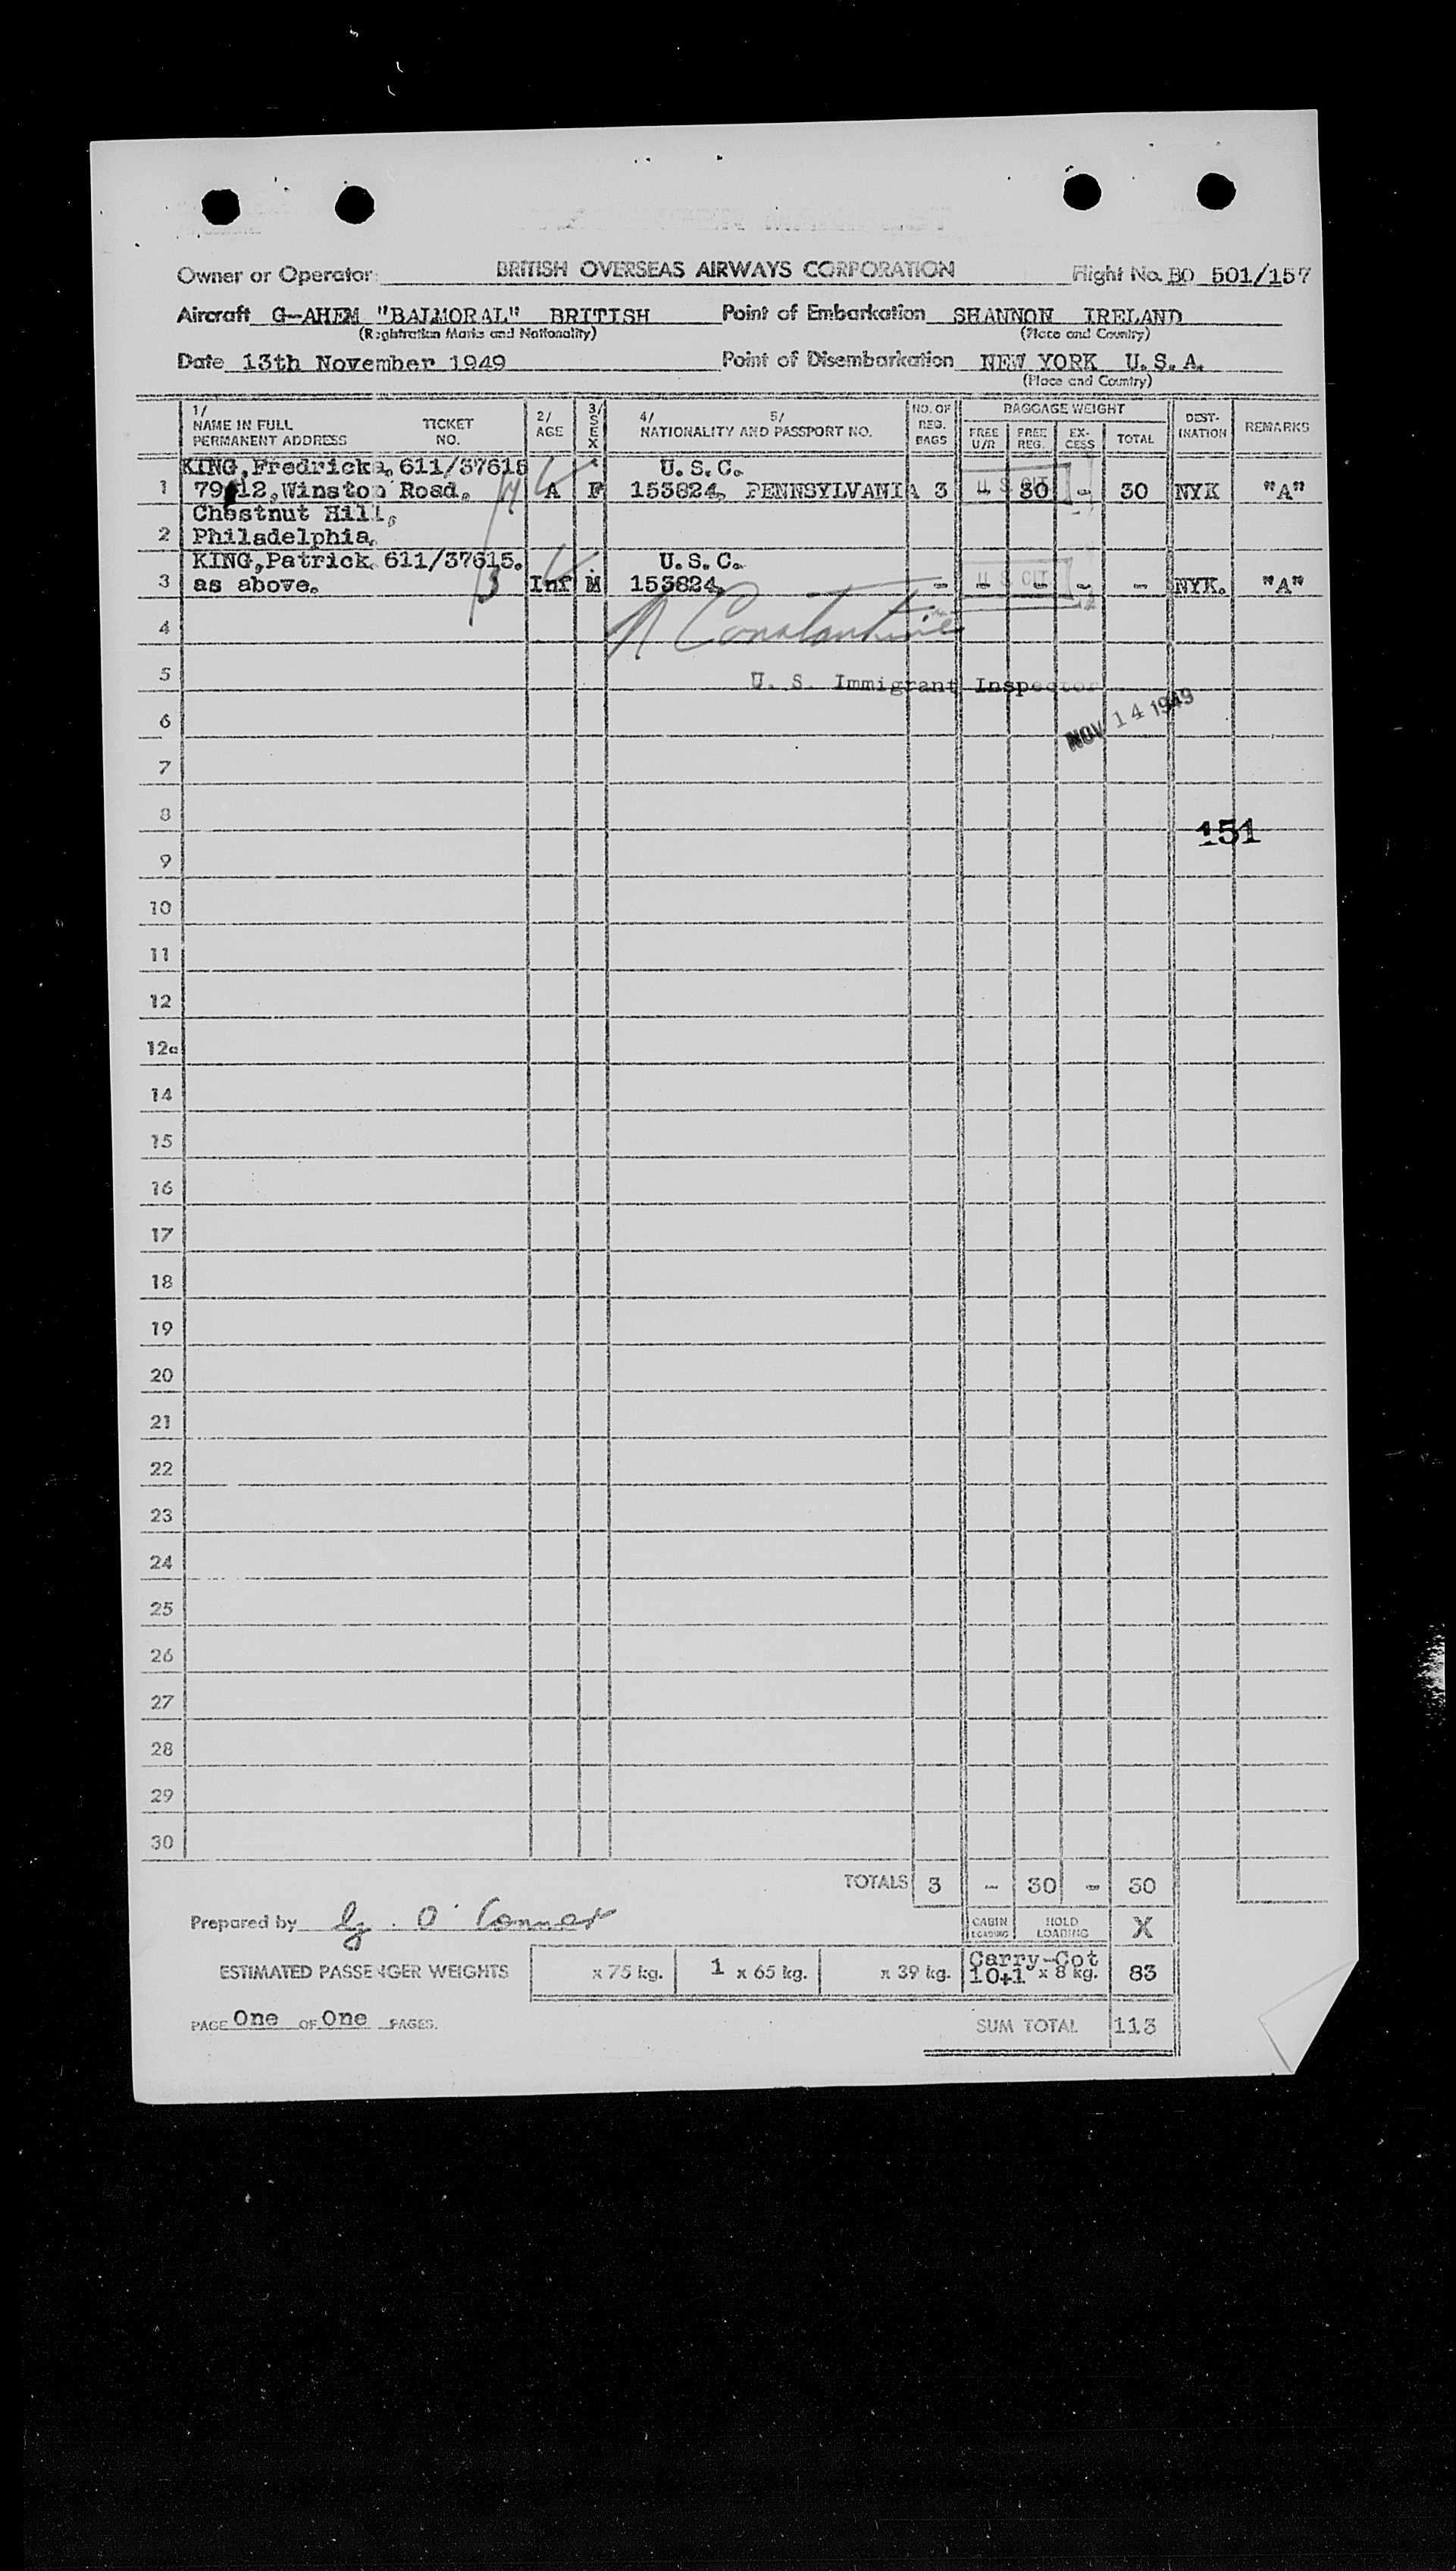 Owner or Operator BRITISH OVERSEAS AIRWAYS CORPORATION Flight No. BO 501/157
Aircraft G-AHEM "BALMORAL" BRITISH Point of Embarkation SHANNON IRELAND
(Registration Marks and Nationality) (Place and Country)
Date 13th November 1949 Point of Disembarkation NEW YORK U.S.A.
(Place and Country)
1/ NAME IN FULL PERMANENT ADDRESS TICKET NO. 2/ AGE 3/ SEX 4/ 5/ NATIONALITY AND PASSPORT NO. NO. OF REG. BAGS BAGGAGE WEIGHT FREE U/R FREE REG. EX-CESS TOTAL DEST-INATION REMARKS
KING, Fredricka. 611/37615 U.S.C.
1 79 12, Winston Road. A F 153824, PENNSYLVANIA 3 - 30 - 30 NYK "A"
Chestnut Hill,
2 Philadelphia.
KING, Patrick. 611/37615. U.S.C.
3 as above. 3 Inf M 153824. - - - - - NYK. "A"
U S CIT
U S CIT
N Constantine
4
U. S. Immigrant Inspector
5
NOV 14 1949
6
7
8
151
9
10
11
12
12a
14
15
16
17
18
19
20
21
22
23
24
25
26
27
28
29
30
TOTALS 3 - 30 - 30
Prepared by G. O'Connor CABIN LOADING HOLD LOADING X
ESTIMATED PASSENGER WEIGHTS x 75 kg. 1 x 65 kg. x 39 kg. Carry-Cot 10+1 x 8 kg. 83
PAGE One OF One PAGES. SUM TOTAL 113